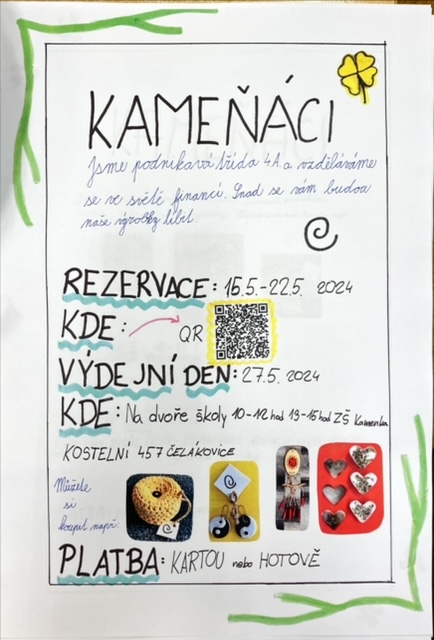 KAMEŇÁCI
Jsme podnikavá třída 4.A. a vzděláváme
se ve světě financí. Snad se vám budou
naše výrobky líbit
REZERVACE: 15.5.-22.5. 2024
KDE: QR
VÝDEJNÍ DEN: 27.5. 2024
KDE: Na dvoře školy 10-12 hod 13-15 hod ZŠ Kamenka
KOSTELNÍ 457 ČELÁKOVICE
Můžete
si
koupit např.
PLATBA: KARTOU nebo HOTOVĚ